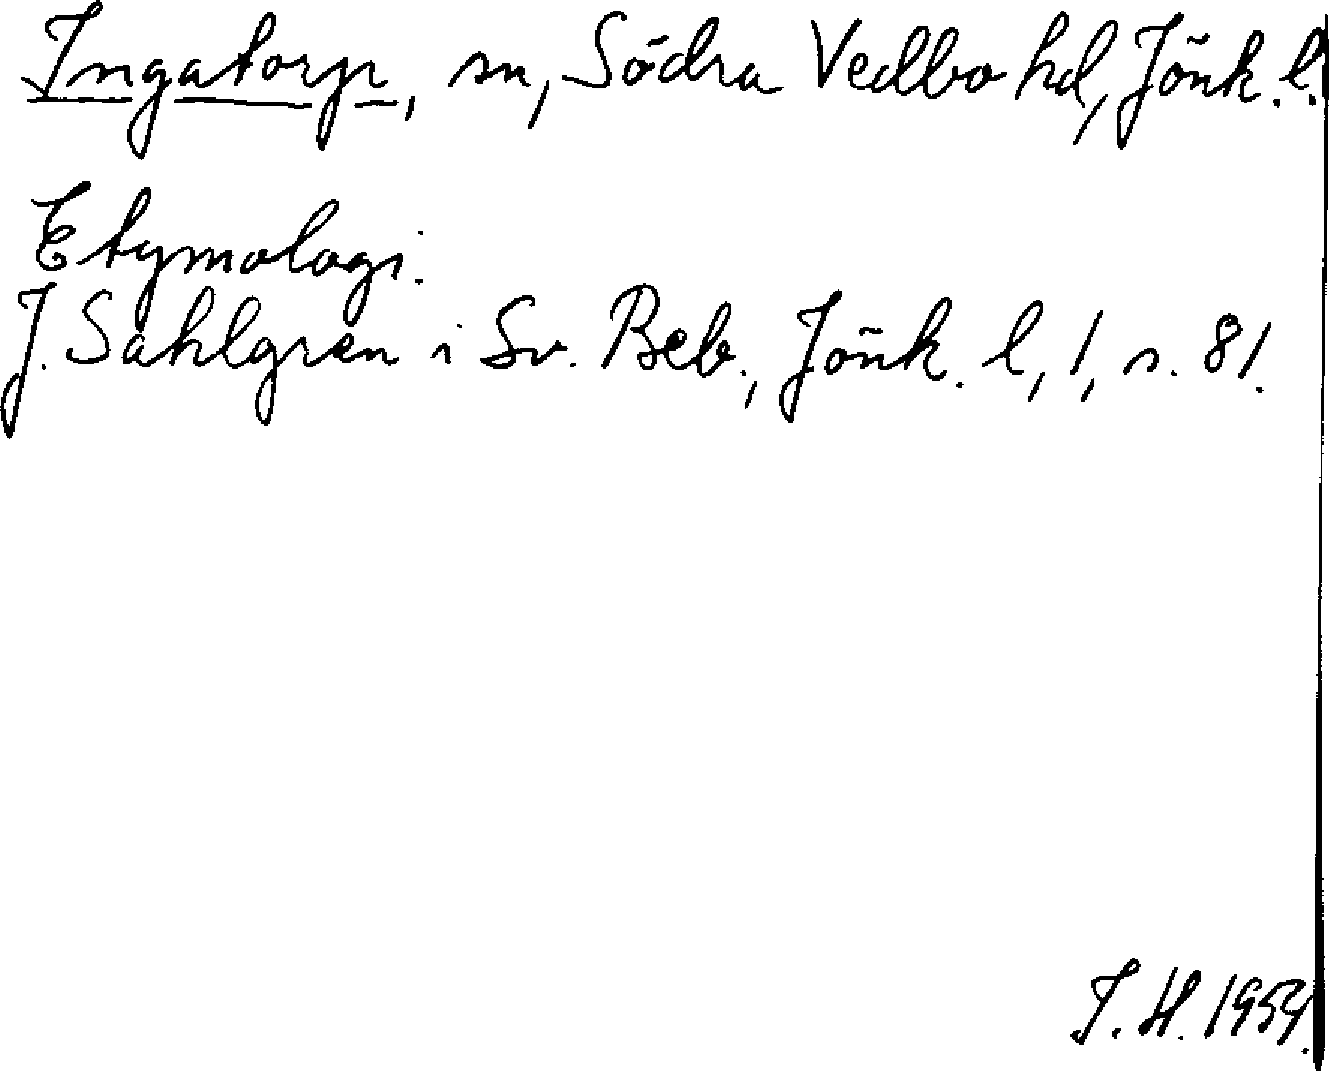 Ingatorp, sn, Södra Vedbo hd, Jönk. l.
Etymologi.
J. Sahlgren i Sv. Beb., Jönk. l, 1, s. 81.
I. H. 1959.